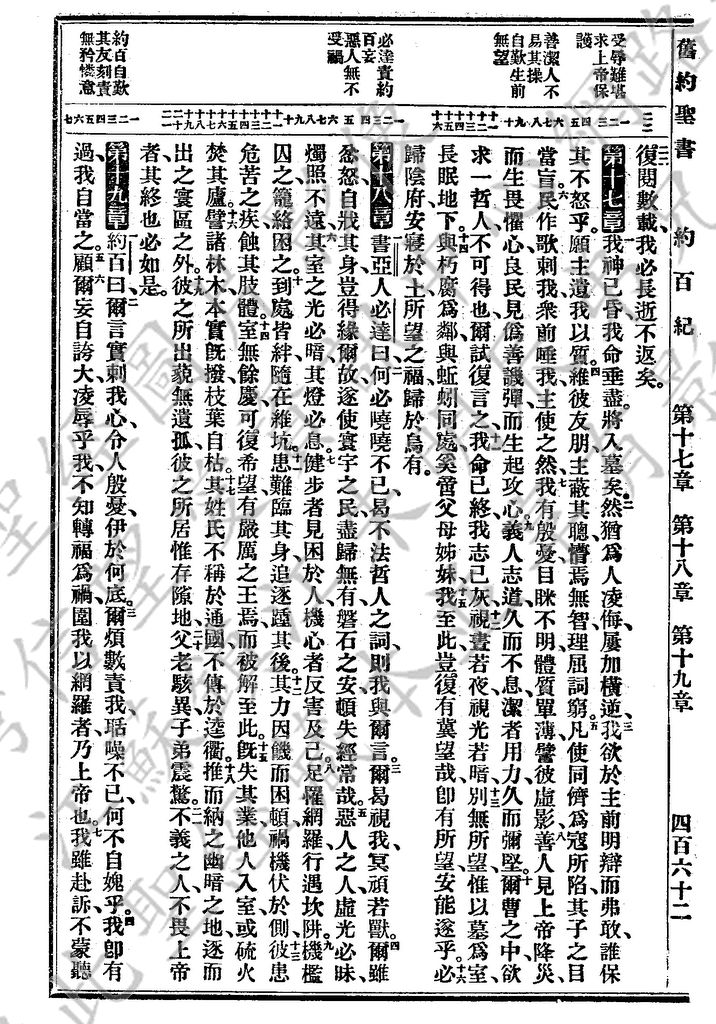 舊約聖書 約百紀 第十七章 第十八章 第十九章 四百六十二
受辱難堪求上帝保護
善潔人不易其操自歎生前無望
必達責約百妄
惡人無不受禍
約百自歎其友刻責無矜憐意
復閱數載、我必長逝不返矣。
第十七章 我神已昏、我命垂盡、將入墓矣。二然猶爲人凌侮、屢加橫逆、三我欲於主前明辯而弗敢、誰保
其不怒乎、願主遺我以質、四維彼友朋、主蔽其聰、懵焉無智、理屈詞窮。五凡使同儕爲寇所陷、其子之目
當盲。六民作歌刺我、衆前唾我、主使之然、七我有殷憂、目眯不明、體質單薄、譬彼虛影、八善人見上帝降災、
而生畏懼心、良民見僞善譏彈、而生起攻心。九義人志道、久而不息、潔者用力、久而彌堅。十爾曹之中、欲
求一哲人不可得也、爾試復言之、十一我命已終、我志已灰、十二視晝若夜、視光若暗、十三別無所望、惟以墓爲室、
長眠地下、十四與朽腐爲鄰、與蚯蚓同處、奚啻父母姊妹、十五我至此豈復有冀望哉、卽有所望、安能遂乎、十六必
歸陰府、安寢於土、所望之福、歸於烏有。
第十八章 一書亞人必達曰、二何必嘵嘵不已、曷不法哲人之詞、則我與爾言。三爾曷視我冥頑若獸、四爾雖
忿怒自戕其身、豈得緣爾故、遂使寰宇之民、盡歸無有、磐石之安、頓失經常哉。五惡人之人、虛光必昧、
燭照不遠、六其室之光必暗、其燈必息。七健步者見困於人、機心者反害及己。八足罹網羅、行遇坎阱、九機檻
囚之、籠絡困之、十到處皆絆、隨在維坑、十一患難臨其身、追逐踵其後、十二其力因饑而困頓、禍機伏於側、十三彼患
危苦之疾、蝕其肢體、十四室無餘慶可復希望、有嚴厲之王焉、而被解至此。十五旣失其業、他人入室、或硫火
焚其廬。十六譬諸林木、本實旣撥、枝葉自枯。十七其姓氏不稱於通國、不傳於逵衢、十八推而納之幽暗之地、逐而
出之寰區之外。十九彼之所出、藐無遺孤、彼之所居、惟存隙地、二十父老駭異、子弟震驚。二一不義之人、不畏上帝
者、其終也必如是。
第十九章 一約百曰、二爾言實刺我心、令人殷憂、伊於何底。三爾煩數責我、聒噪不已、何不自媿乎。四我卽有
過、我自當之。五爾妄自誇大、凌辱乎我、六不知轉福爲禍、圍我以網羅者、乃上帝也。七我雖赴訴、不蒙聽